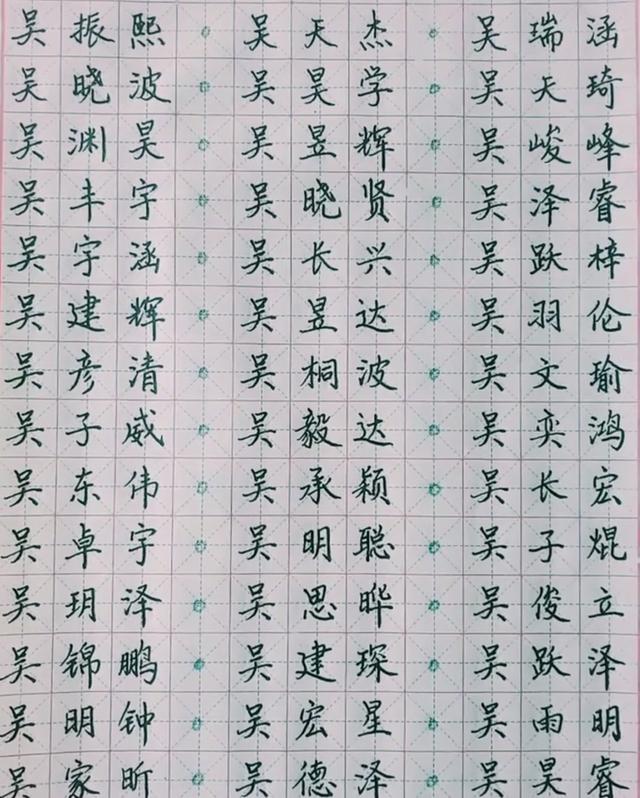 吴振熙。吴天杰。吴瑞涵
吴晓波。吴昊学。吴天琦
吴渊昊。吴昱辉。吴峻峰
吴丰宇。吴晓贤。吴泽睿
吴宇涵。吴长兴。吴跃梓
吴建辉。吴昱达。吴羽伦
吴彦清。吴桐波。吴文瑜
吴子威。吴毅达。吴奕鸿
吴东伟。吴承颖。吴长宏
吴卓宇。吴明聪。吴子焜
吴玥泽。吴思晔。吴俊立
吴锦鹏。吴建琛。吴跃泽
吴明钟。吴宏星。吴雨明
吴家昕。吴德泽。吴昊睿